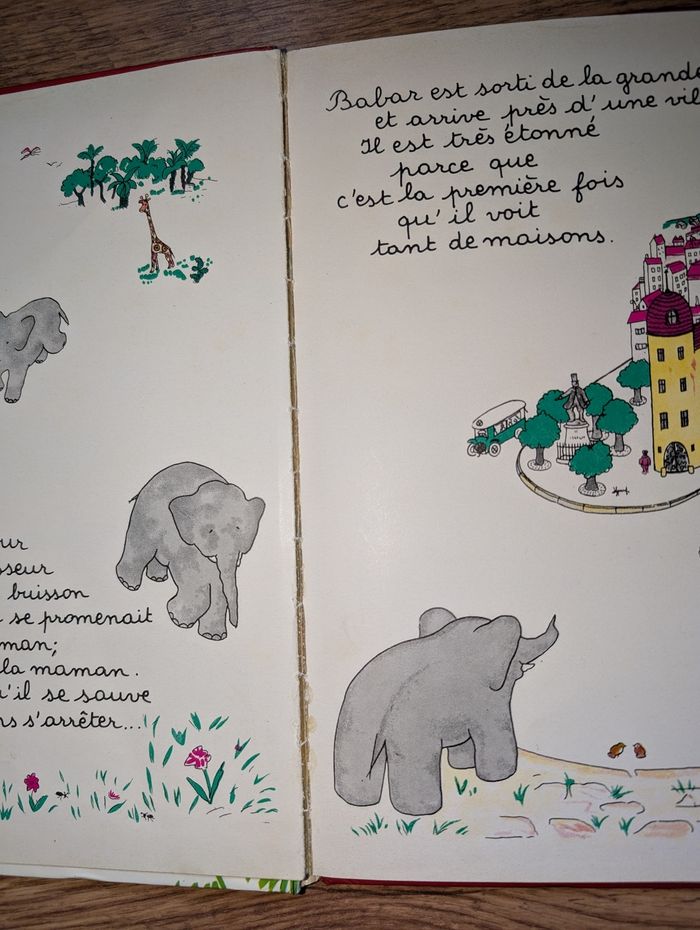 buisson
se promenait
la maman.
qu'il se sauve
s'arrêter...
Babar est sorti de la grande
et arrive près d'une
Il est très étonné
parce que
c'est la première fois
qu'il voit
tant de maisons.